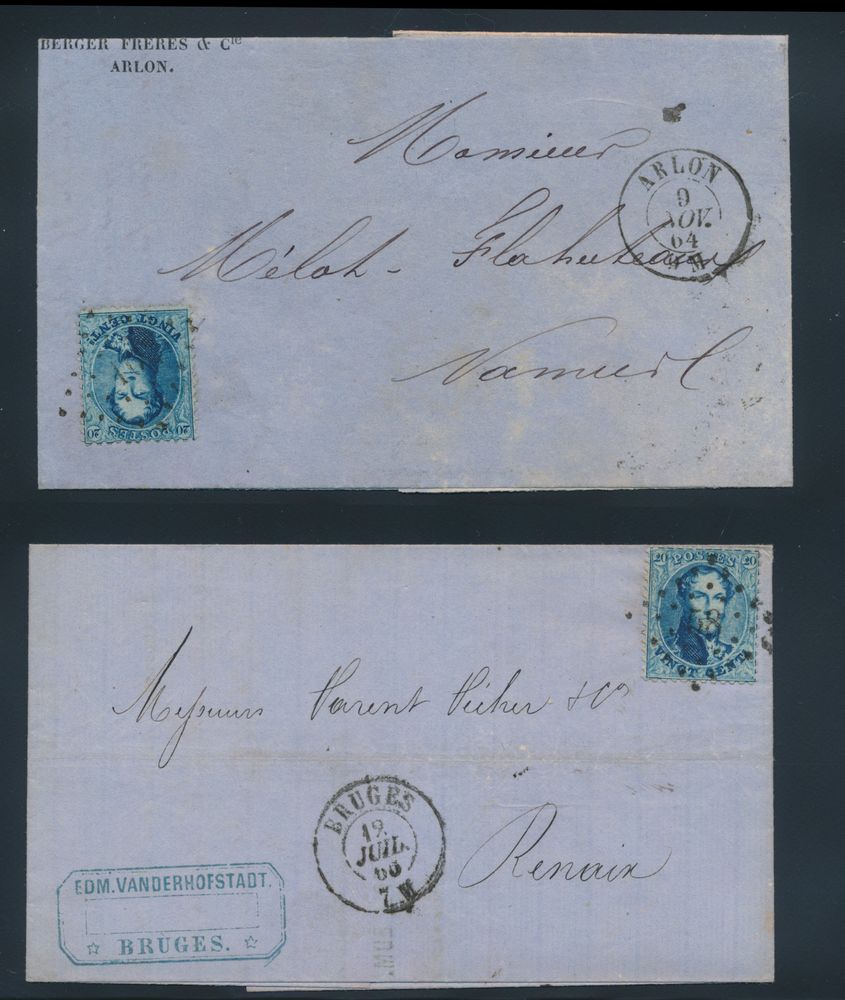 BERGER FRERES & Cie
ARLON.
Monsieur
ARLON
9
NOV.
64
M
Mélot-
Namur
VINGT CENTS
20 POSTES 20
20 POSTES 20
58
VINGT CENTS
Messieurs Parent & Co
BRUGES
12
JUIL.
66
7 M
Renaix
EDM. VANDERHOFSTADT.
☆ BRUGES. ☆